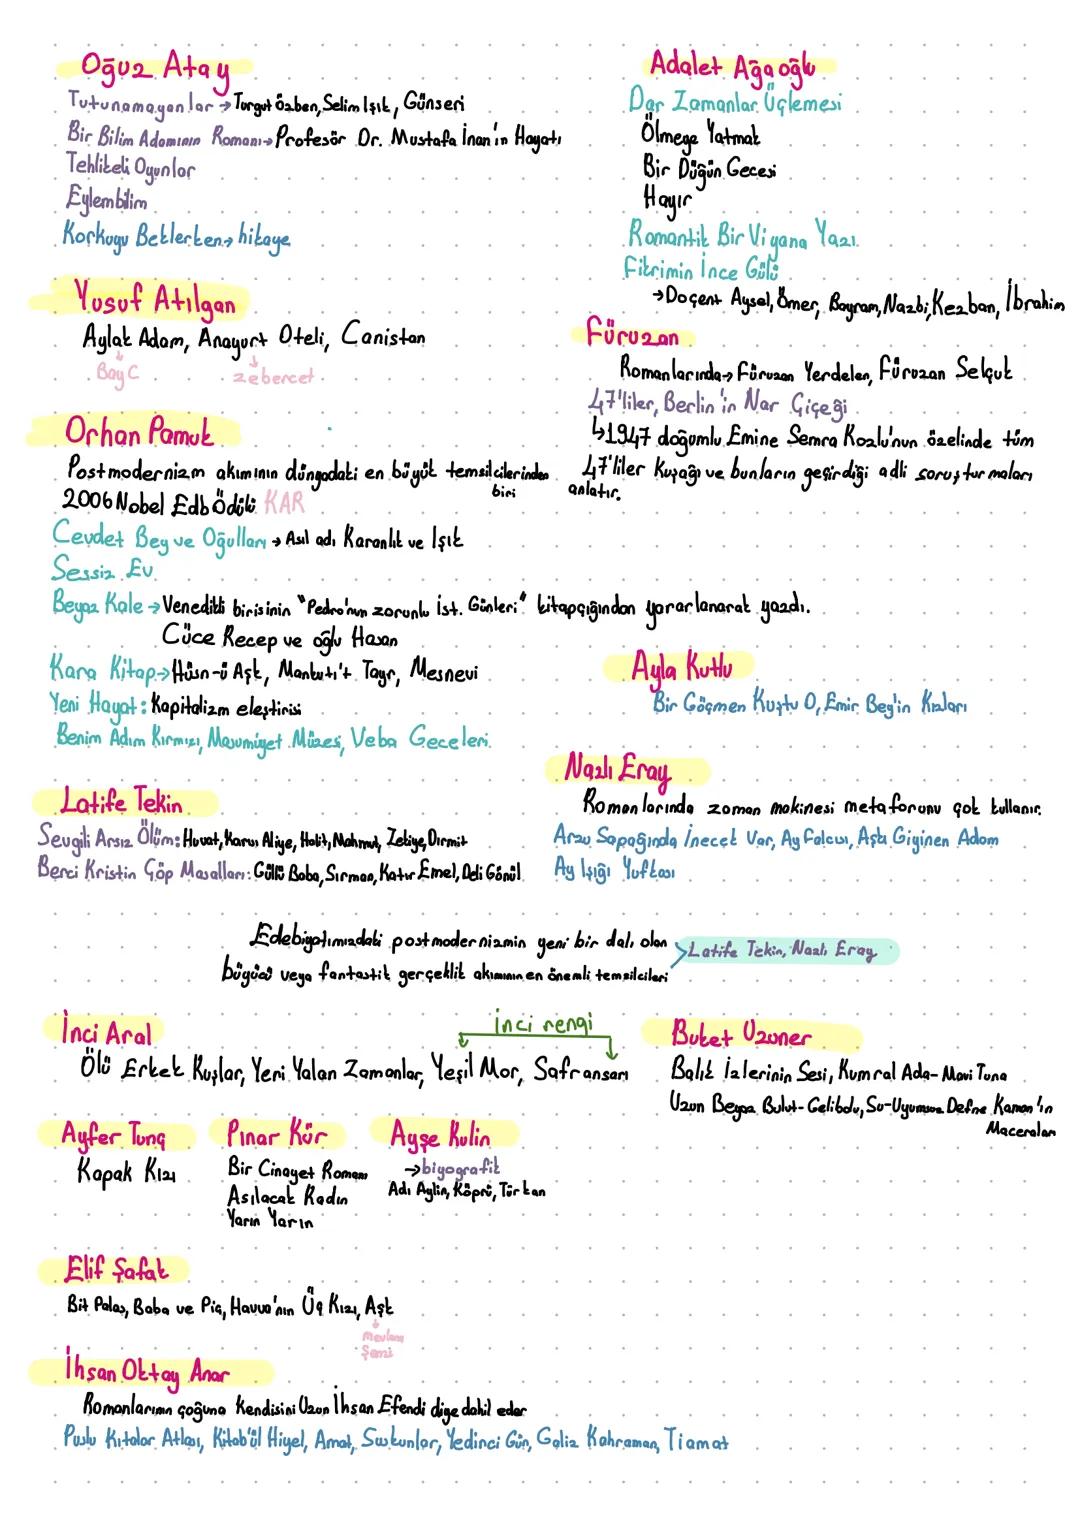 Oğuz Atay
Tutunamayanlar → Turgut Özben, Selim Işık, Günseri
Bir Bilim Adamının Romanı → Profesör Dr. Mustafa İnan'ın Hayatı
Tehlikeli Oyunlar
Eylembilim
Korkuyu Beklerken → hikaye
Yusuf Atılgan
Aylak Adam, Anayurt Oteli, Canistan
Bay C
zebercet
Orhan Pamuk
Postmodernizm akımının dünyadaki en büyük temsilcilerinden
biri
2006 Nobel Edb Ödülü KAR
Cevdet Bey ve Oğulları → Asıl adı Karanlık ve Işık
Sessiz Ev
Beyaz Kale → Venedikli birisinin "Pedro'nun zorunlu İst. Günleri" kitapçığından yararlanarak yazdı.
Cüce Recep ve oğlu Hasan
Kara Kitap → Hüsn-ü Aşk, Mantuk'ı't Tayr, Mesnevi
Yeni Hayat: Kapitalizm eleştirisi
Benim Adım Kırmızı, Masumiyet Müzesi, Veba Geceleri
Latife Tekin
Sevgili Arsız Ölüm: Huvat, Karısı Aliye, Halit, Mahmut, Zekiye, Dirmit
Berci Kristin Çöp Masalları: Güllü Baba, Sırman, Katır Emel, Deli Gönül
Adalet Ağaoğlu
Dar Zamanlar Üçlemesi
Ölmeye Yatmak
Bir Düğün Gecesi
Hayır
Romantik Bir Viyana Yazı
Fikrimin İnce Gülü
→ Doçent Aysel, Ömer, Bayram, Nazbi, Kezban, İbrahim
Füruzan
Romanlarında → Füruzan Yerdelen, Füruzan Selçuk
47'liler, Berlin'in Nar Çiçeği
↳ 1947 doğumlu Emine Semra Kozlu'nun özelinde tüm
47'liler Kuşağı ve bunların geçirdiği adli soruşturmaları
anlatır.
Ayla Kutlu
Bir Göçmen Kuştu O, Emir Bey'in Kızları
Nazlı Eray
Romanlarında zaman makinesi metaforunu çok kullanır.
Arzu Sapağında İnecek Var, Ay Falcısı, Aşkı Giyinen Adam
Ay Işığı Yuftası
Edebiyatımızdaki postmodernizmin yeni bir dalı olan
büyücü veya fantastik gerçeklik akımının en önemli temsilcileri
Latife Tekin, Nazlı Eray
İnci Aral
inci rengi
Ölü Erkek Kuşlar, Yeni Yalan Zamanlar, Yeşil Mor, Safransarı
Buket Uzuner
Balık İzlerinin Sesi, Kumral Ada-Mavi Tuna
Uzun Beyaz Bulut-Gelibolu, Su-Uyumsuz Defne Kaman'ın
Maceraları
Ayfer Tunç
Kapak Kızı
Pınar Kür
Bir Cinayet Romanı
Asılacak Kadın
Yarın Yarın
Ayşe Kulin
→ biyografik
Adı Aylin, Köprü, Türkan
Elif Şafak
Bit Palas, Baba ve Piç, Havva'nın Üç Kızı, Aşk
mevlana
Şems
İhsan Oktay Anar
Romanlarının çoğuna Kendisini Uzun İhsan Efendi diye dahil eder
Puslu Kıtalar Atlası, Kitab'ül Hiyel, Amat, Suskunlar, Yedinci Gün, Galiz Kahraman, Tiamat